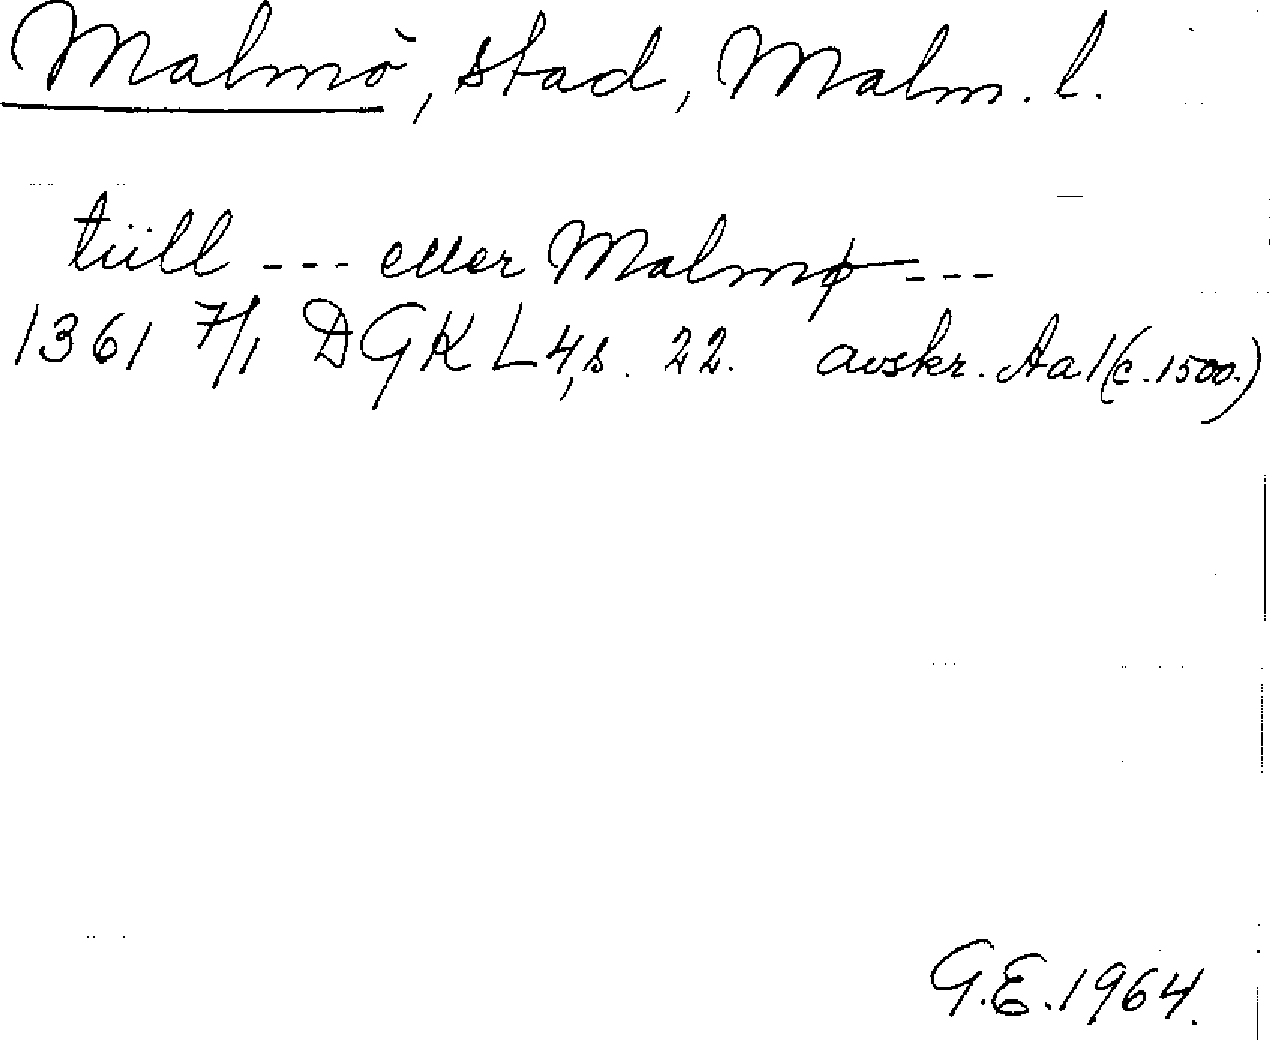 Malmö, stad, Malm. l.
tiill --- eller Malmø ---
1361 7/1 DGKL 4, s. 22. avskr. Aa 1 (c. 1500.)
G.E. 1964.